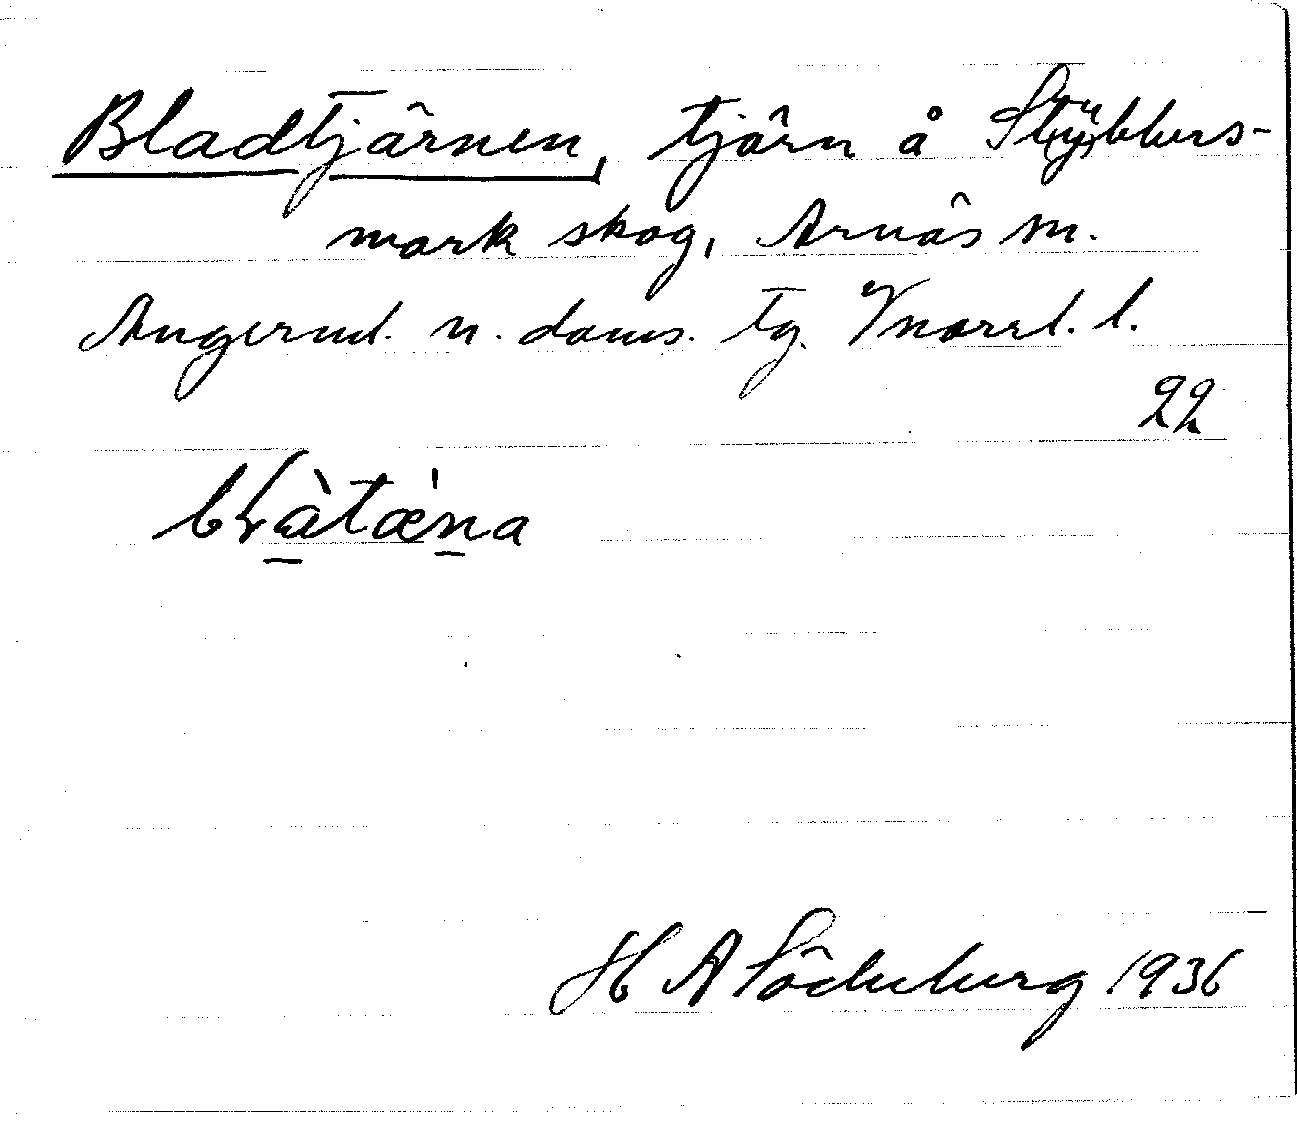 Bladtjärnen, tjärn å Stybbers-
mark skog, Arnäs sn.
Ångermd. n. doms. tg. Vnorrl. l.
22
H A Söderberg 1936